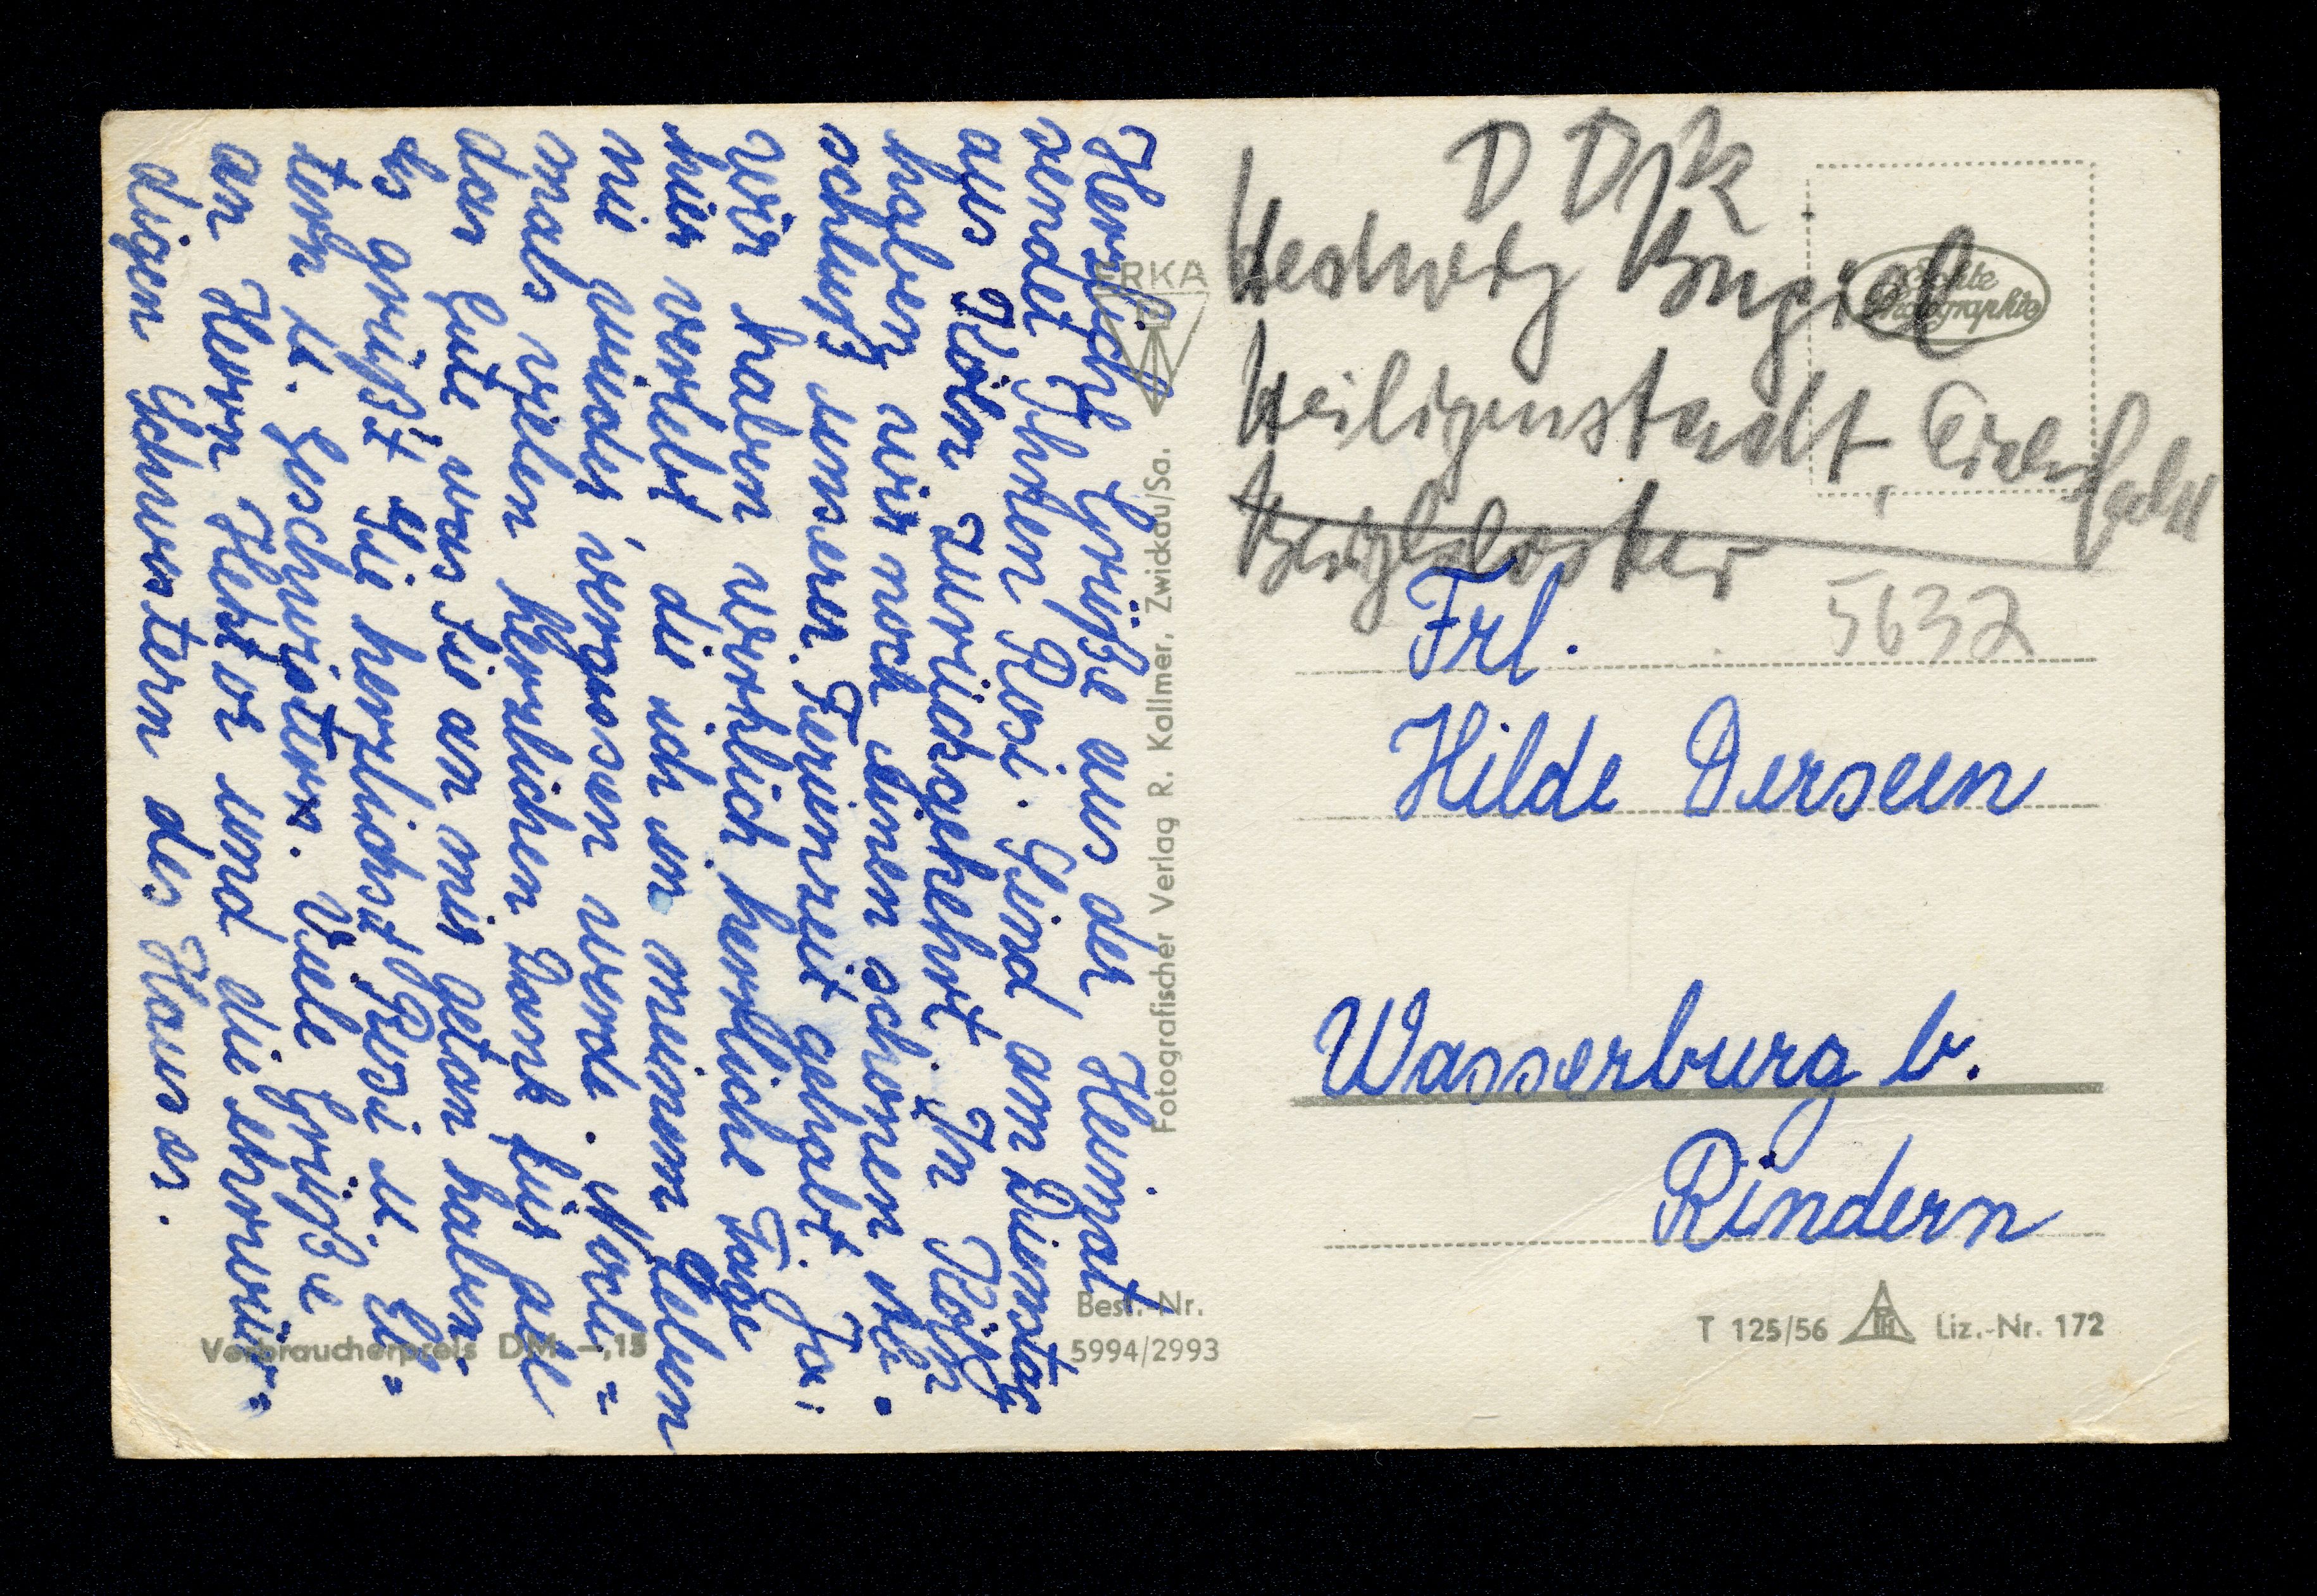 Herzliche Grüße aus der Heimat
sendet Ihnen Rosi. Sind am Dienstag
aus Köln zurückgekehrt. In Köln
haben wir noch einen schönen Ab-
schluß unserer Ferienzeit gehabt.
Wir haben wirklich herrliche Tage
hier verlebt, die ich in meinem Leben
nie wieder vergessen werde. Noch-
mals vielen herzlichen Dank für all
das Gute was Sie an mir getan haben.
Es grüßt Sie herzlichst Rosi u. El-
tern u. Geschwistern. Viele Grüße
an Herrn Rektor und die ehrwür-
digen Schwestern des Hauses.
ERKA
Fotografischer Verlag R. Kallmer, Zwickau/Sa.
Verbraucherpreis DM –,15
Best.-Nr.
5994/2993
DDR
Hedwig
Heiligenstadt, Eichsfeld
Bergkloster
5632
Echte
Photographie
Frl.
Hilde Derseen
Wasserburg b.
Rindern
T 125/56 Liz.-Nr. 172